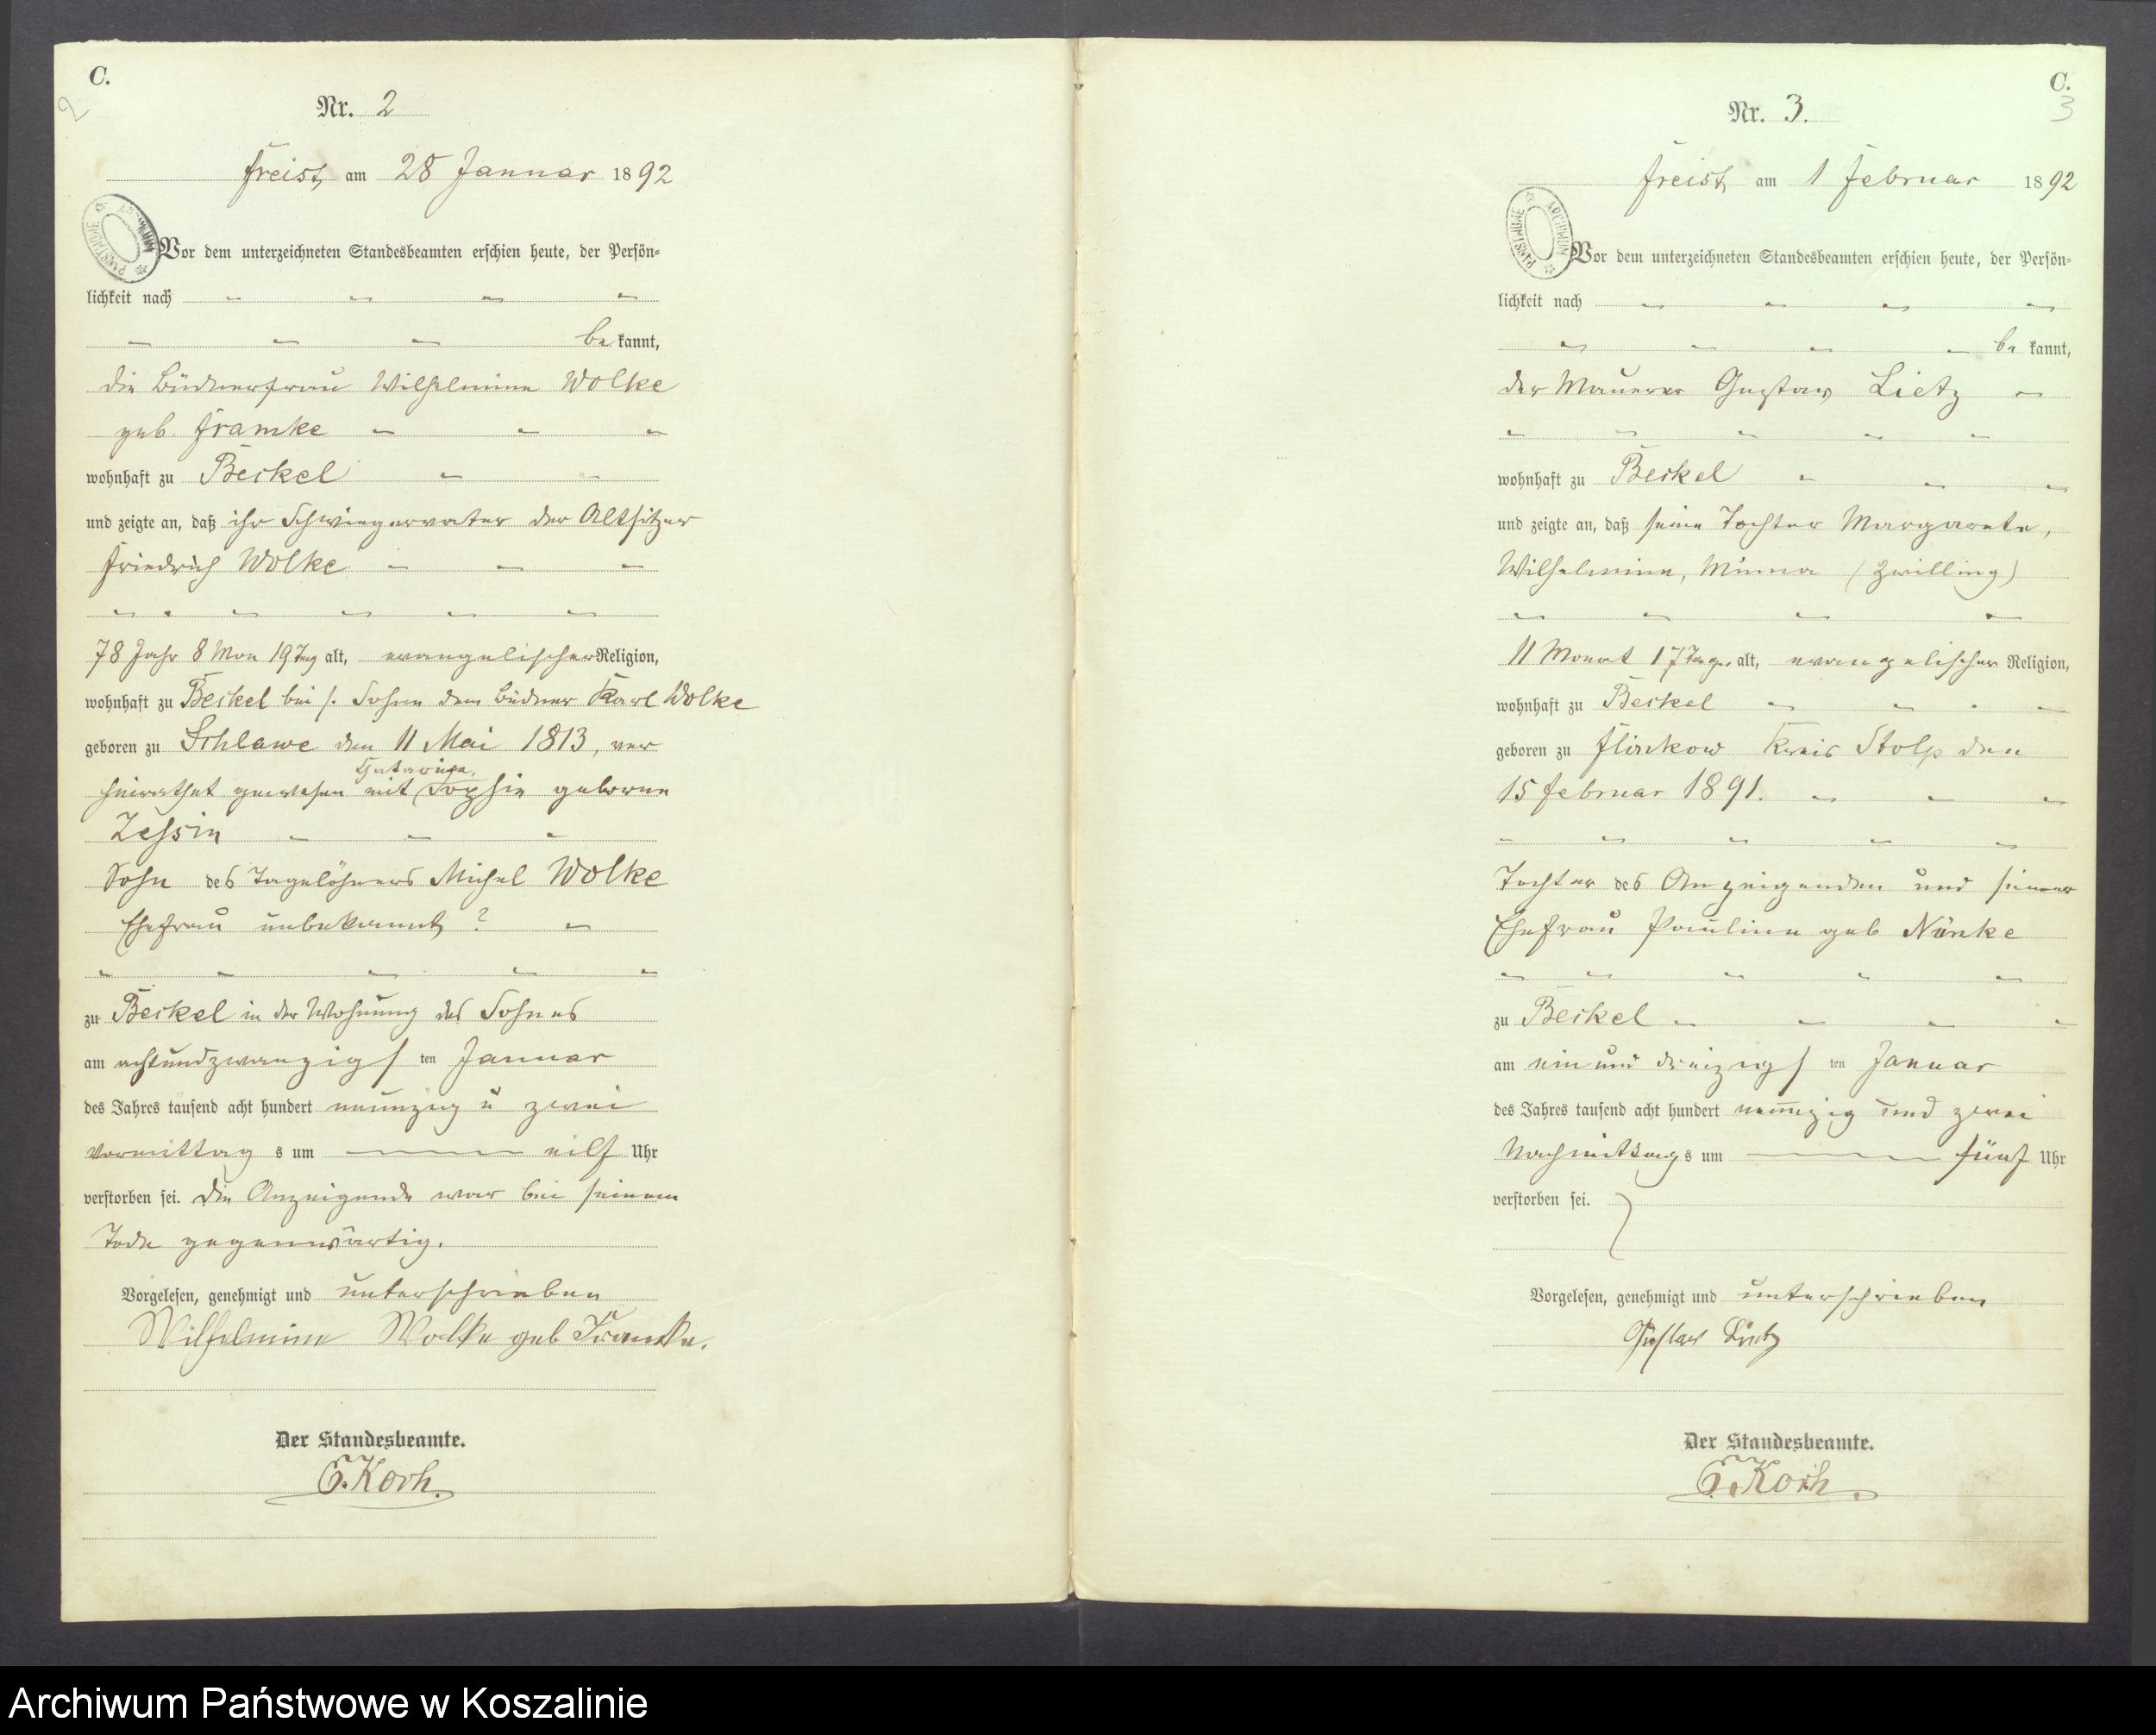 C.
2
Nr. 2
Freist, am 28 Januar 1892
Vor dem unterzeichneten Standesbeamten erschien heute, der Persön-
lichkeit nach
be kannt,
die Büdnerfrau Wilhelmine Wolke
geb. Framke
wohnhaft zu Beckel
und zeigte an, daß ihr Schwiegervater der Altsitzer
Friedrich Wolke
78 Jahr 8 Mon 19 Tag alt, evangelischer Religion,
wohnhaft zu Beckel bei s. Sohne dem Büdner Karl Wolke
geboren zu Schlawe den 11 Mai 1813, ver
heirathet gewesen mit Sophie geborene
Zessin
Sohn des Tagelöhners Michel Wolke
Ehefrau unbekannt ?
zu Beckel in der Wohnung des Sohnes
am achtundzwanzigs ten Januar
des Jahres tausend acht hundert neunzig u zwei
Vormittag s um eilf Uhr
verstorben sei. Die Anzeigende war bei seinem
Tode gegenwärtig.
Vorgelesen, genehmigt und unterschrieben
Wilhelmine Wolke geb Framke.
Der Standesbeamte.
E. Koch.
C.
3
Nr. 3.
Freist, am 1 Februar 1892
Vor dem unterzeichneten Standesbeamten erschien heute, der Persön-
lichkeit nach
be kannt,
der Maurer Gustav Lietz
wohnhaft zu Beckel
und zeigte an, daß seine Tochter Margarete,
Wilhelmine, Minna (Zwilling)
11 Monat 17 Tage, alt, evangelischer Religion,
wohnhaft zu Beckel
geboren zu Flinkow Kreis Stolp den
15 Februar 1891.
Tochter des Anzeigenden und seiner
Ehefrau Pauline geb Nünke
zu Beckel
am ein und dreizigs ten Januar
des Jahres tausend acht hundert neunzig und zwei
Nachmittags um fünf Uhr
verstorben sei.
Vorgelesen, genehmigt und unterschrieben
Gustav Lietz
Der Standesbeamte.
E. Koch.
Archiwum Państwowe w Koszalinie